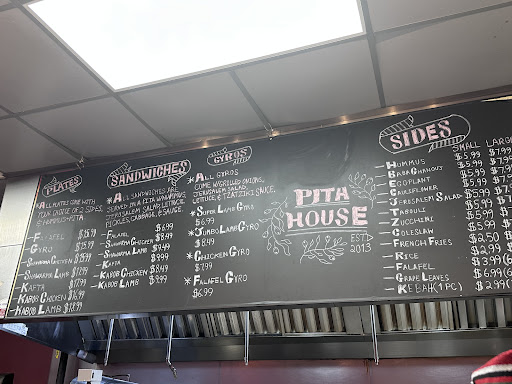 PLATES
*ALL PLATES COME WITH
YOUR CHOICE OF 2 SIDES
- FALAFEL $15.99
- GYRO
- SHAWARMA CHICKEN
- SHAWARMA LAMB
- KAFTA
- KABOB CHICKEN $16.99
- KABOB LAMB $18.99
SANDWICHES
*ALL SANDWICHES ARE
SERVED IN A PITA W/HUMMUS,
JERUSALEM SALAD, LETTUCE,
PICKLES, CABBAGE, & SAUCE
- FALAFEL $6.99
- SHAWARMA CHICKEN $8.49
- SHAWARMA LAMB
- KAFTA
- KABOB CHICKEN $8.49
- KABOB LAMB $8.99
GYROS
*ALL GYROS
COME W/GRILLED ONIONS,
JERUSALEM SALAD,
LETTUCE, & TZATZIKI SAUCE
*SMALL LAMB GYRO
$6.99
*JUMBO LAMB GYRO
$8.49
*CHICKEN GYRO
$7.99
*FALAFEL GYRO
$6.99
PITA
HOUSE
ESTD
2013
SIDES
SMALL LARGE
- HUMMUS $5.99 $7.99
- BABA GHANOUJ $5.99
- EGGPLANT $5.99
- CAULIFLOWER $5.99
- JERUSALEM SALAD $5.99
- TABOULI
- ZUCCHINI
- COLESLAW
- FRENCH FRIES $2.50
- RICE
- FALAFEL $3.99
- GRAPE LEAVES $6.99
- KEBAH (1 PC) $2.99